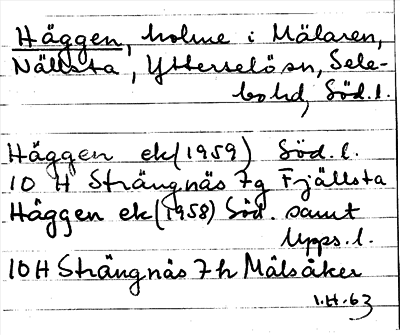 Häggen, holme i Mälaren,
Nällsta, Ytterselö sn, Sele-
bo hd, Söd.l.
Häggen ek (1959) Söd.l.
10 H Strängnäs 7g Fjällsta
Häggen ek (1958) Söd. samt
Upps.l.
10H Strängnäs 7h Målsåker
1.H.63